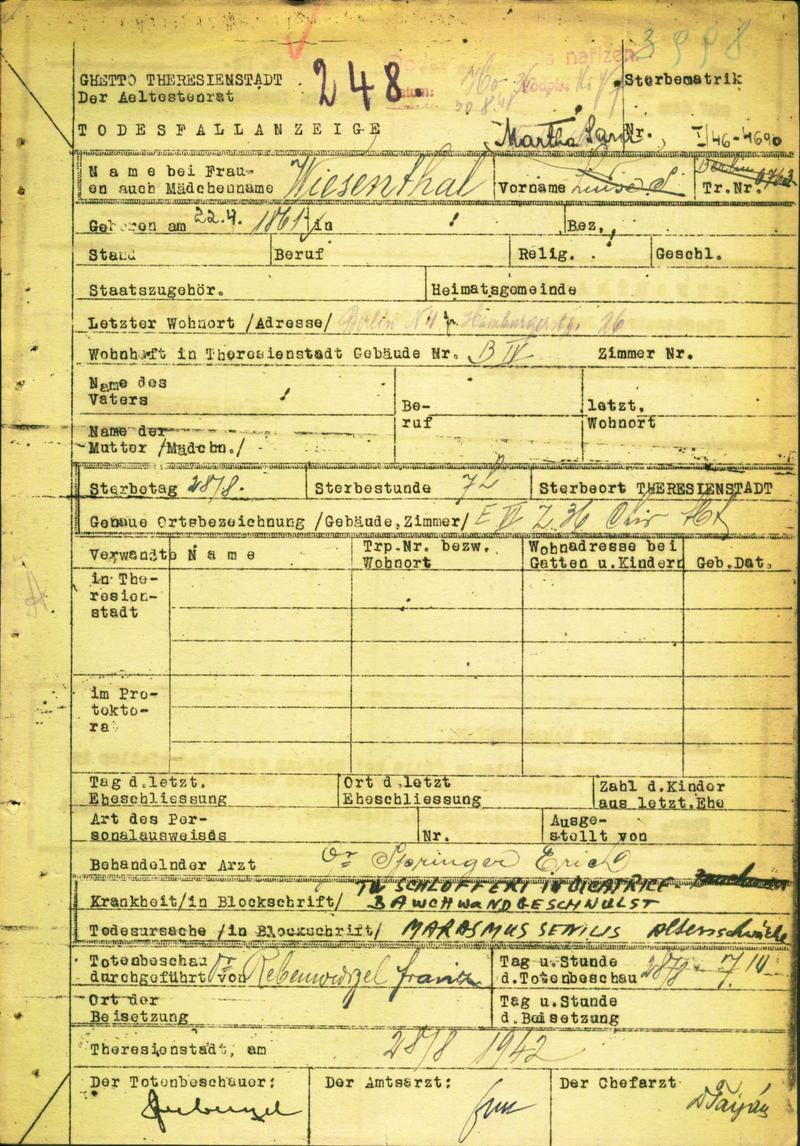 3998
GHETTO THERESIENSTADT 248. Sterbematrik
Der Aeltestenrat
TODESFALLANZEIGE Martha Sara Nr. I/46-4690
Name bei Frau- Wiesenthal Vorname
en auch Mädchenname Tr.Nr.
Geboren am 22.4. 1861 in Bez.
Stand Beruf Relig. Geschl.
Staatszugehör. Heimatsgemeinde
Letzter Wohnort /Adresse/ Berlin Hamburgerstr. 26
Wohnhaft in Theresienstadt Gebäude Nr. B IV Zimmer Nr.
Name des
Vaters Be- letzt.
Name der ruf Wohnort
Mutter /Mädchn./
Sterbetag 28/8. Sterbestunde 7 Sterbeort THERESIENSTADT
Genaue Ortsbezeichnung /Gebäude,Zimmer/ E VI Z.36
Verwandte Name Trp.Nr. bezw. Wohnadresse bei
Wohnort Gatten u.Kindern Geb.Dat.
in The-
resien-
stadt
im Pro-
tekto-
ra
Tag d.letzt. Ort d.letzt Zahl d.Kinder
Eheschliessung Eheschliessung aus letzt.Ehe
Art des Per- Ausge-
sonalausweises Nr. stellt von
Behandelnder Arzt Dr Springer Erich
TU SCHLOFFERI IN CICATRICE
Krankheit/in Blockschrift/ BAUCHWANDGESCHWULST
Todesursache /in Blockschrift/ MARASMUS SENILIS Altersschwäche
Totenbeschau Dr Rebenwurzel Franz Tag u.Stunde 28/8 7 10
durchgeführt von d.Totenbeschau
Ort der Tag u.Stunde
Beisetzung d.Beisetzung
Theresienstadt, am 28/8 1942
Der Totenbeschauer: Der Amtsarzt: Der Chefarzt